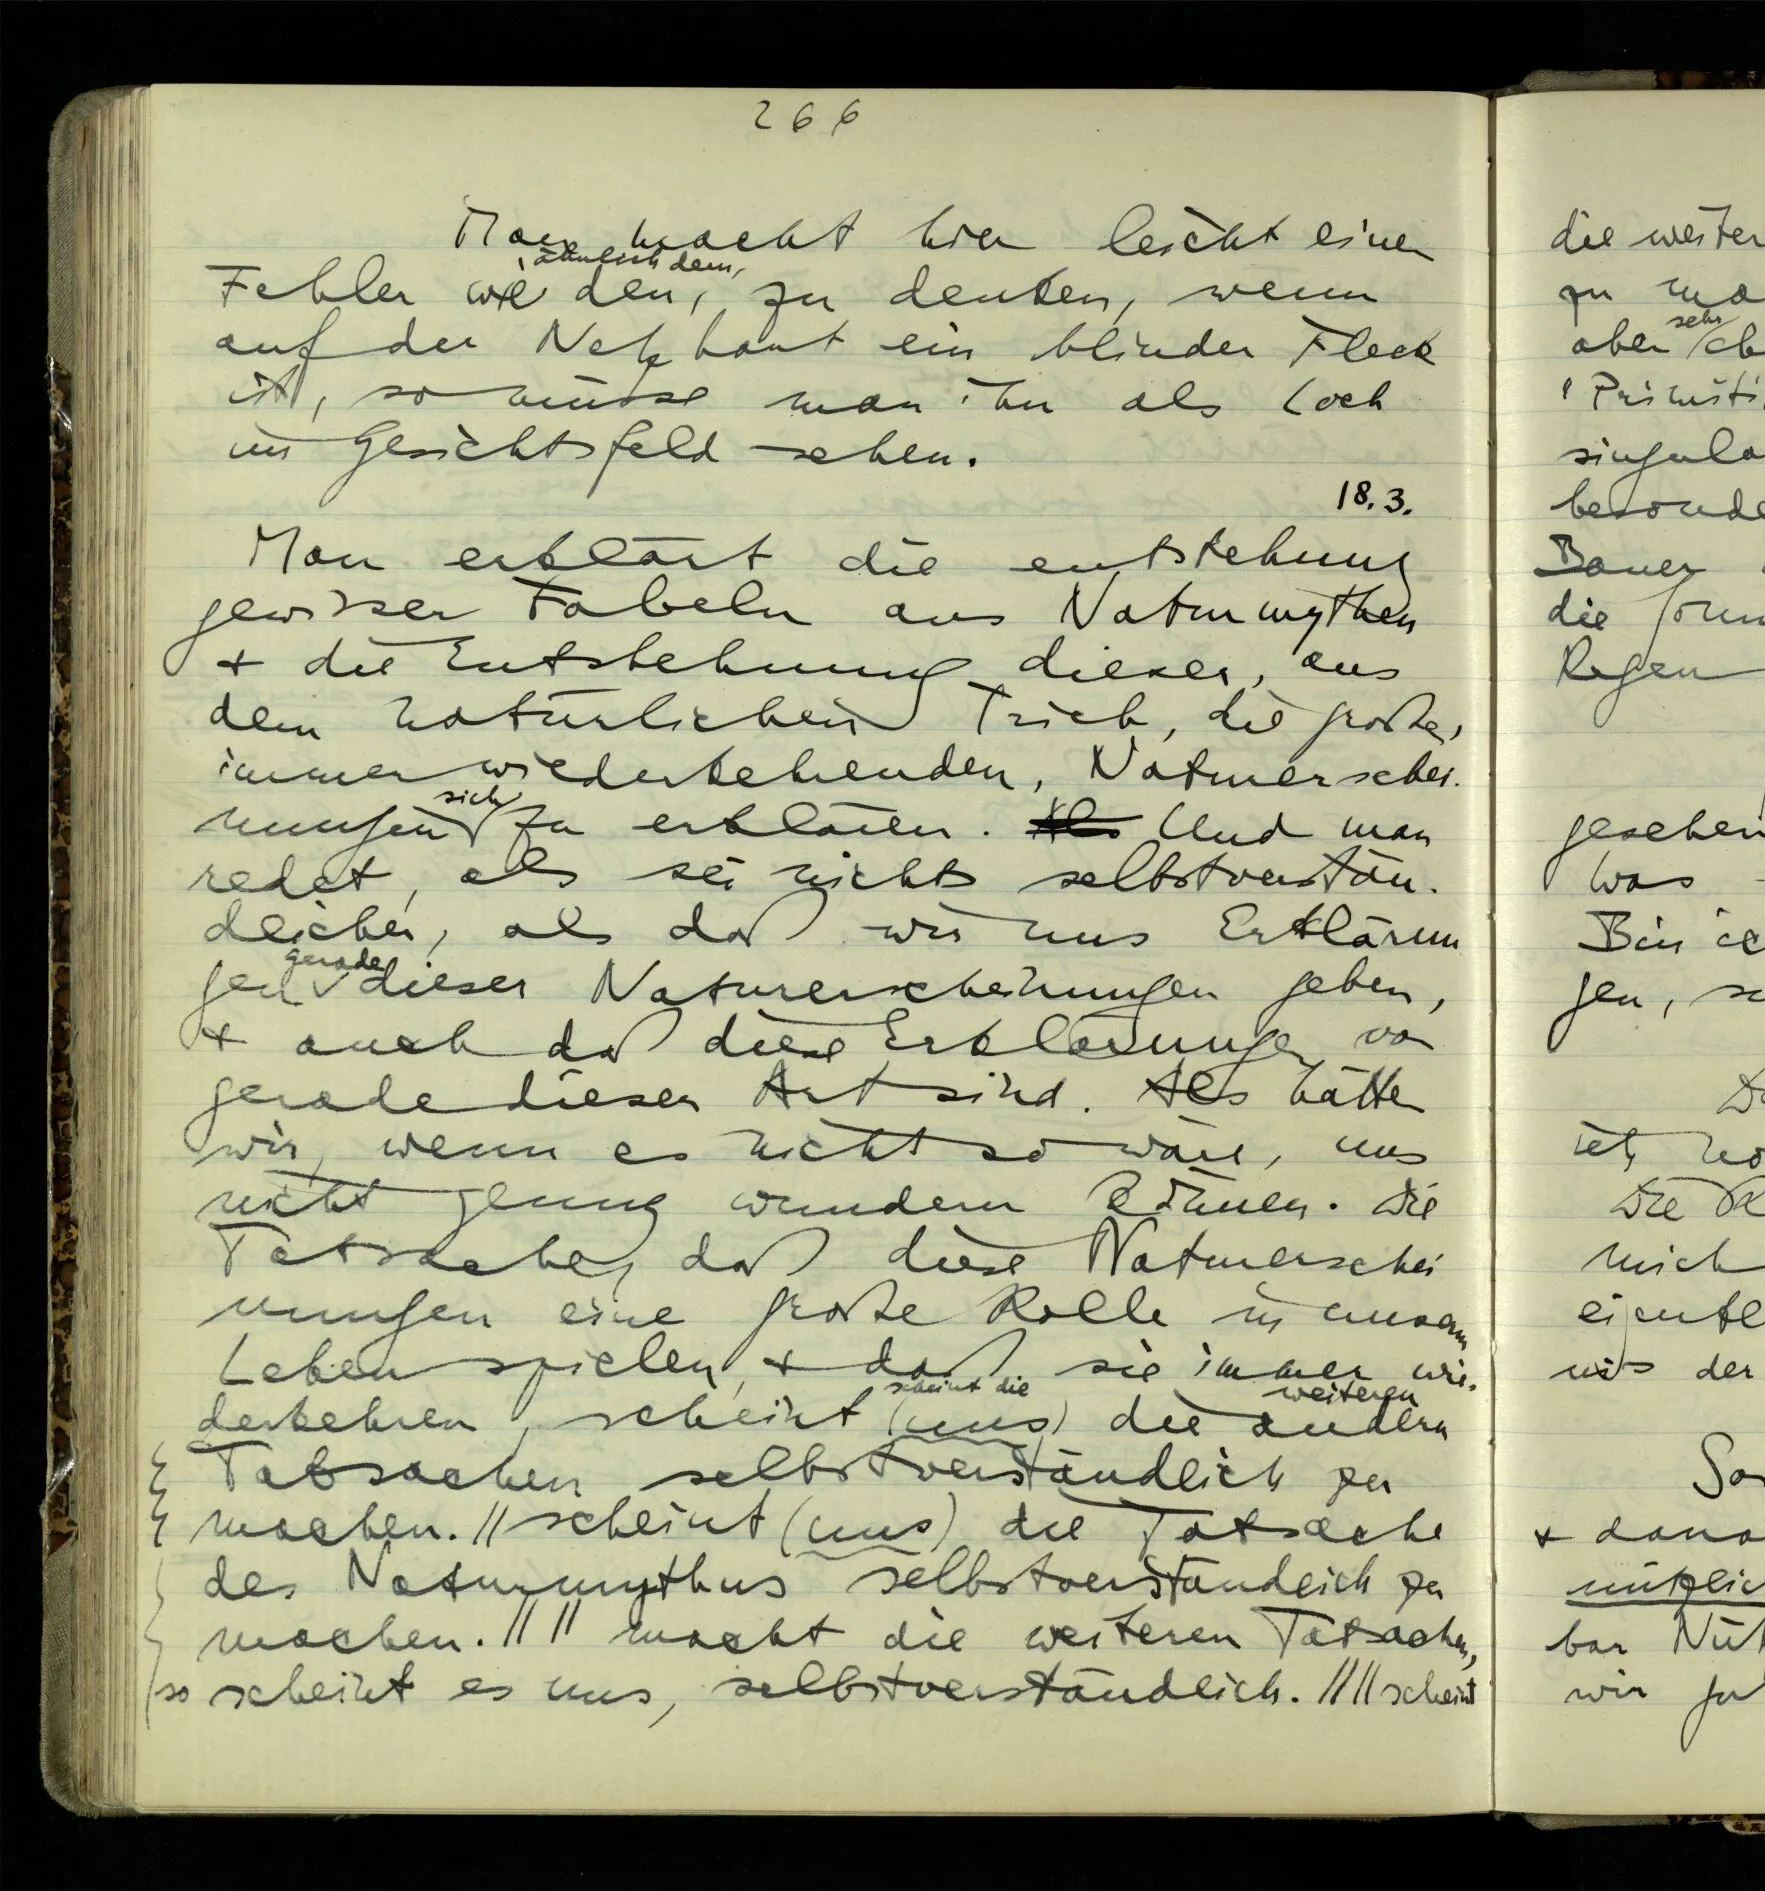 266
Man macht hier leicht einen
ähnlich dem,
Fehler wie den, zu denken, wenn
auf der Netzhaut ein blinder Fleck
ist, so müsse man ihn als Loch
im Gesichtsfeld sehen.
18.3.
Man erklärt die entstehung
gewisser Fabeln aus Naturmythen
+ die Entstehung dieser, aus
dem natürlichen Trieb, die großen,
immer wiederkehrenden, Naturerschei-
sich
nungen zu erklären. Als Und man
redet, als sei nichts selbstverstän-
dlicher, als daß wir uns Erklärun
gerade
gen dieser Naturerscheinungen geben,
+ auch daß diese Erklärungen von
gerade dieser Art sind. Als hätten
wir, wenn es nicht so wäre, uns
nicht genug wundern können. Die
Tatsache, daß diese Naturerschei
nungen eine große Rolle in unserm
Leben spielen, + daß sie immer wie-
scheint die weiteren
derkehren, scheint (uns) die andern
Tatsachen selbstverständlich zu
machen. // scheint (uns) die Tatsache
des Naturmythus selbstverständlich zu
machen. // // macht die weiteren Tatsachen,
so scheint es uns, selbstverständlich. // // scheint
die weiter
zu ma
sehr
aber
"Primiti
singula
besonde
Bauer
die
Regen
gesehen
was
Bin ic
gen, so
ist,
Die
mich
eigentl
nis der
+ dana
nützlic
bar Nüt
wir